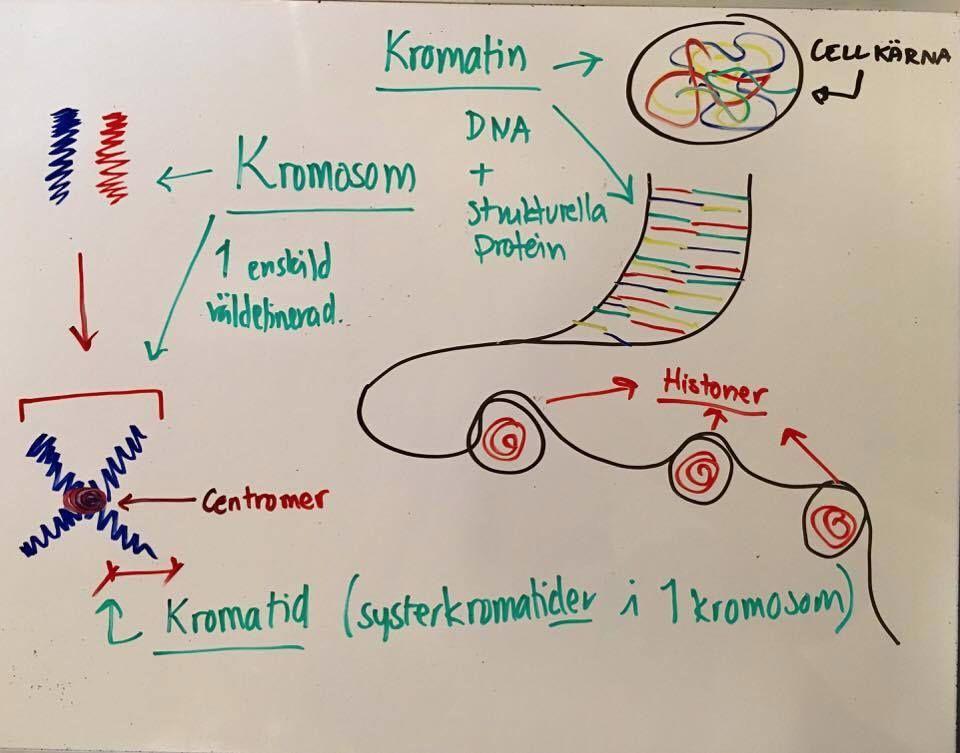 Kromatin
CELLKÄRNA
DNA
+
strukturella
protein
Kromosom
1 enskild
väldefinerad.
Histoner
Centromer
Kromatid (systerkromatider i 1 kromosom)